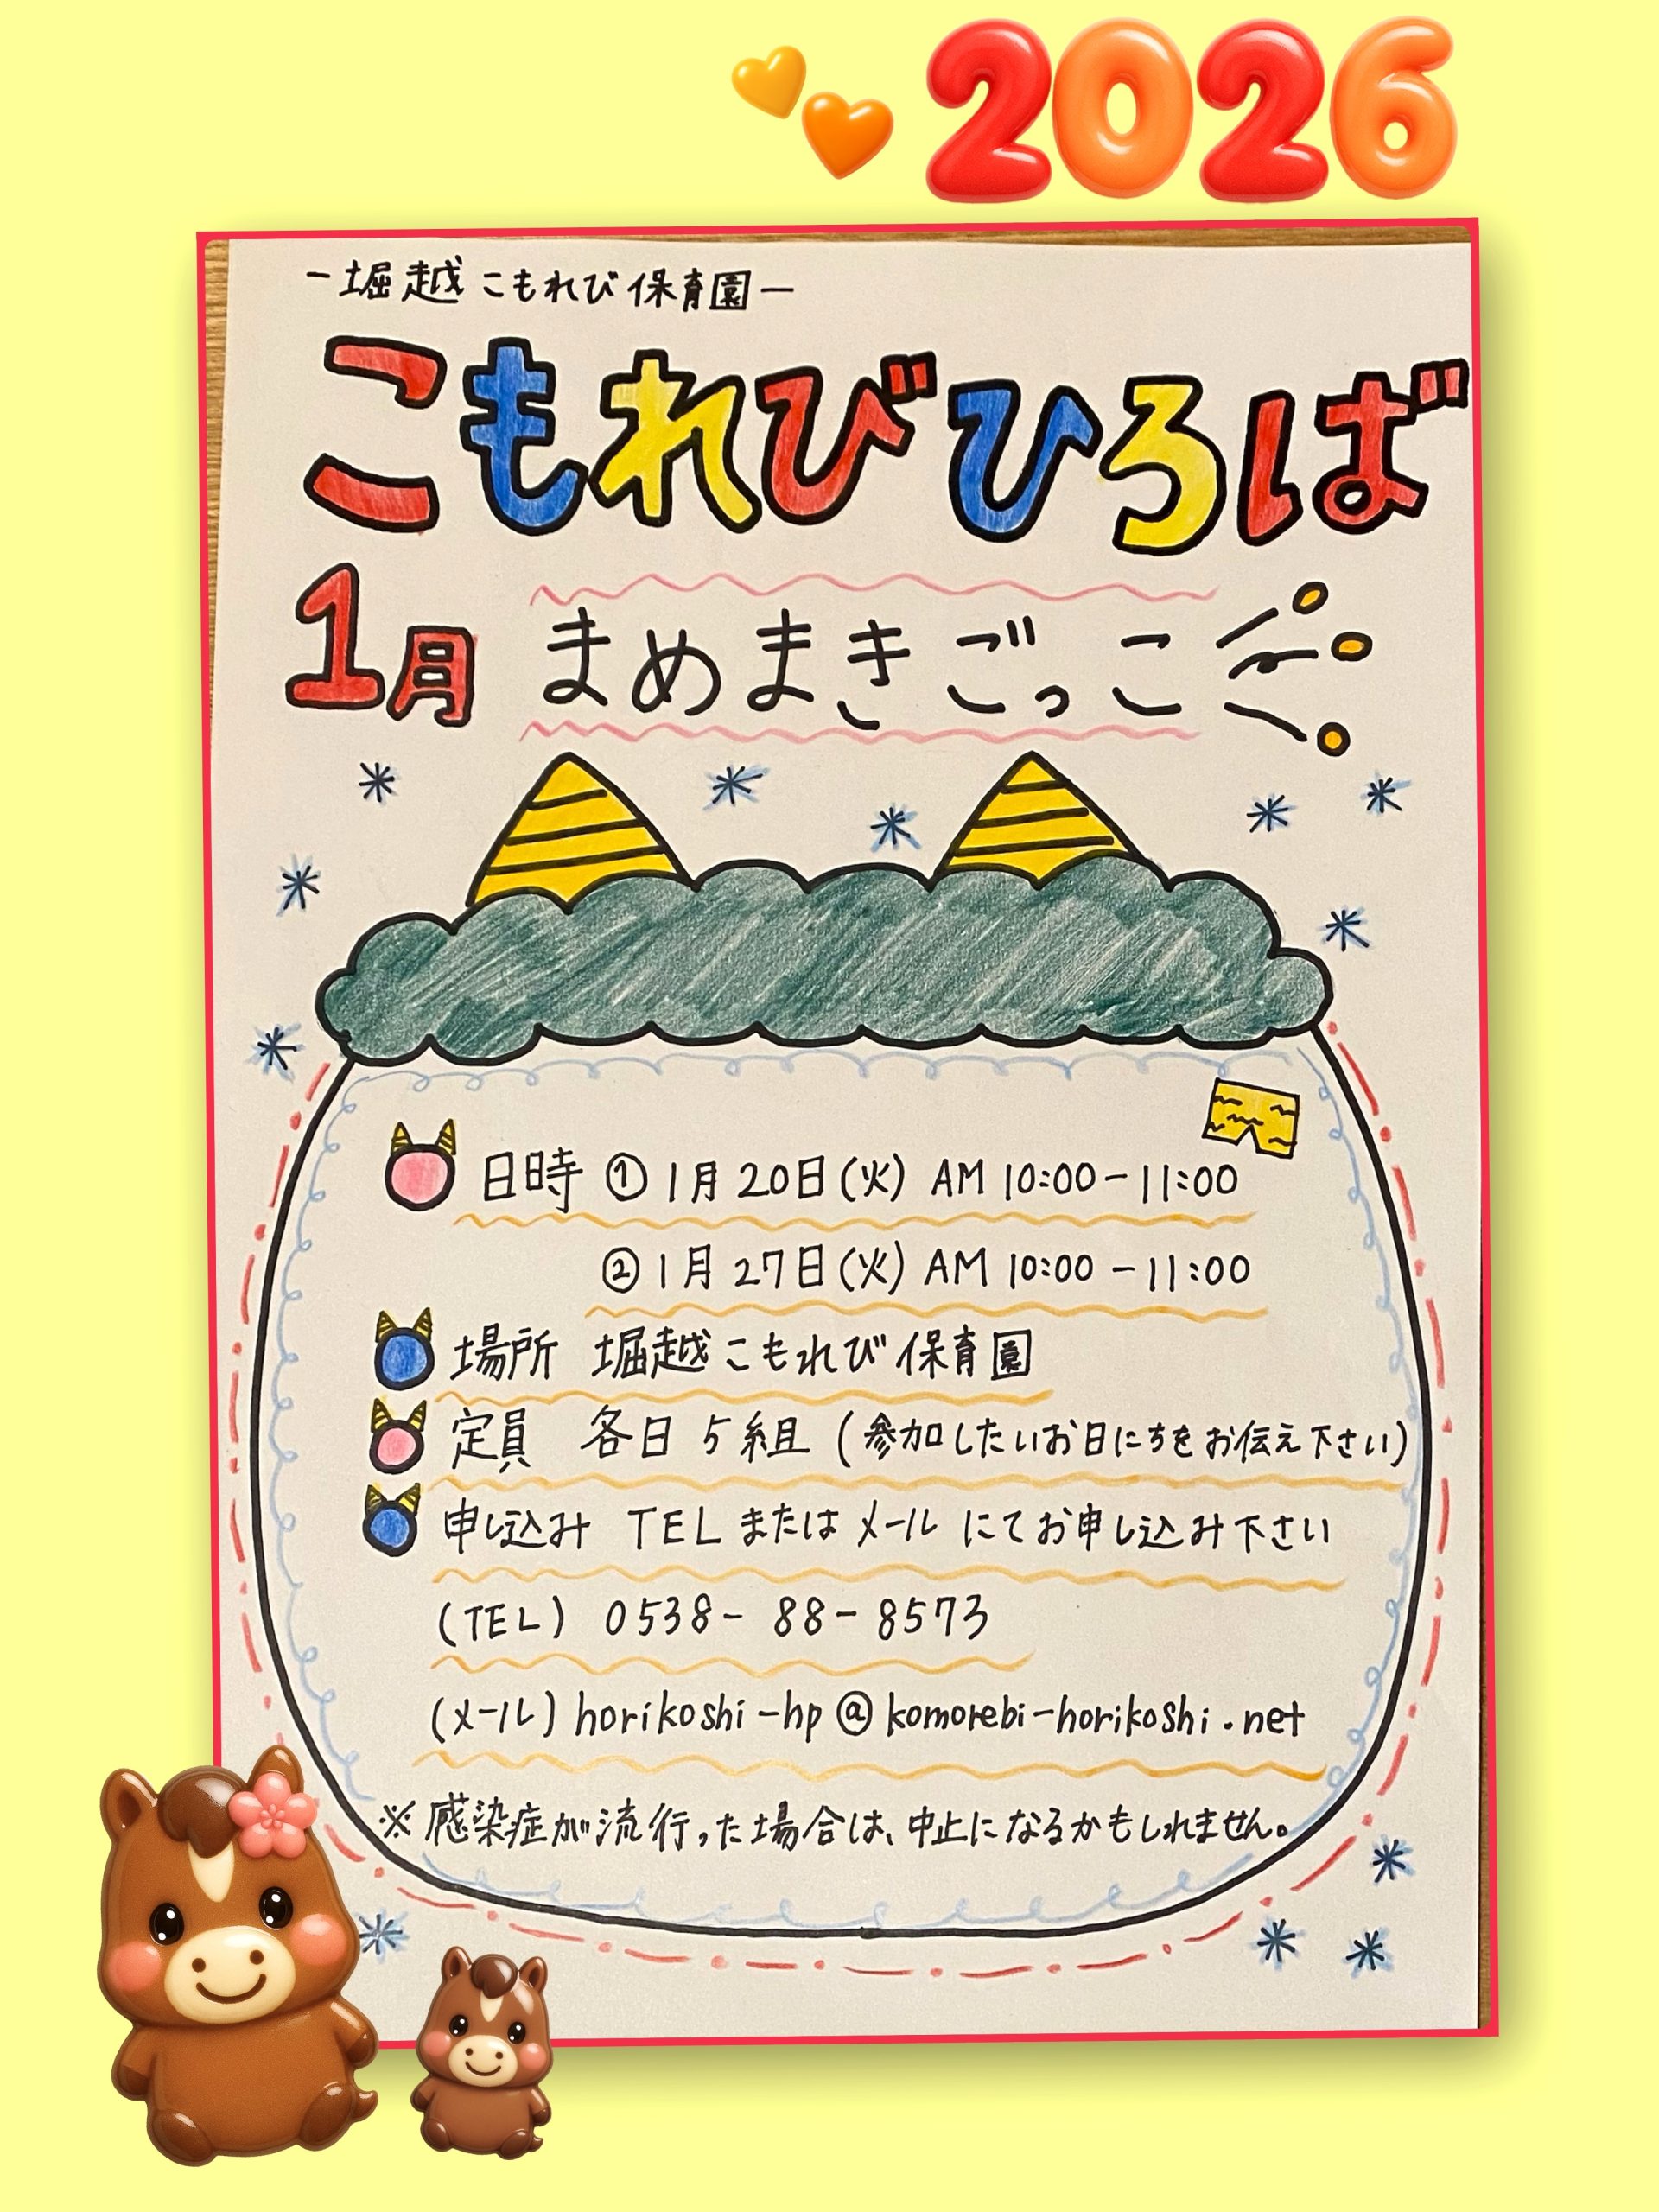 2026
－堀越こもれび保育園－
こもれびひろば
1月 まめまきごっこ
日時 ① 1月20日(火) AM 10:00－11:00
② 1月27日(火) AM 10:00－11:00
場所 堀越こもれび保育園
定員 各日5組 (参加したいお日にちをお伝え下さい)
申し込み TELまたはメールにてお申し込み下さい
(TEL) 0538-88-8573
(メール) horikoshi-hp@komorebi-horikoshi.net
※感染症が流行った場合は、中止になるかもしれません。